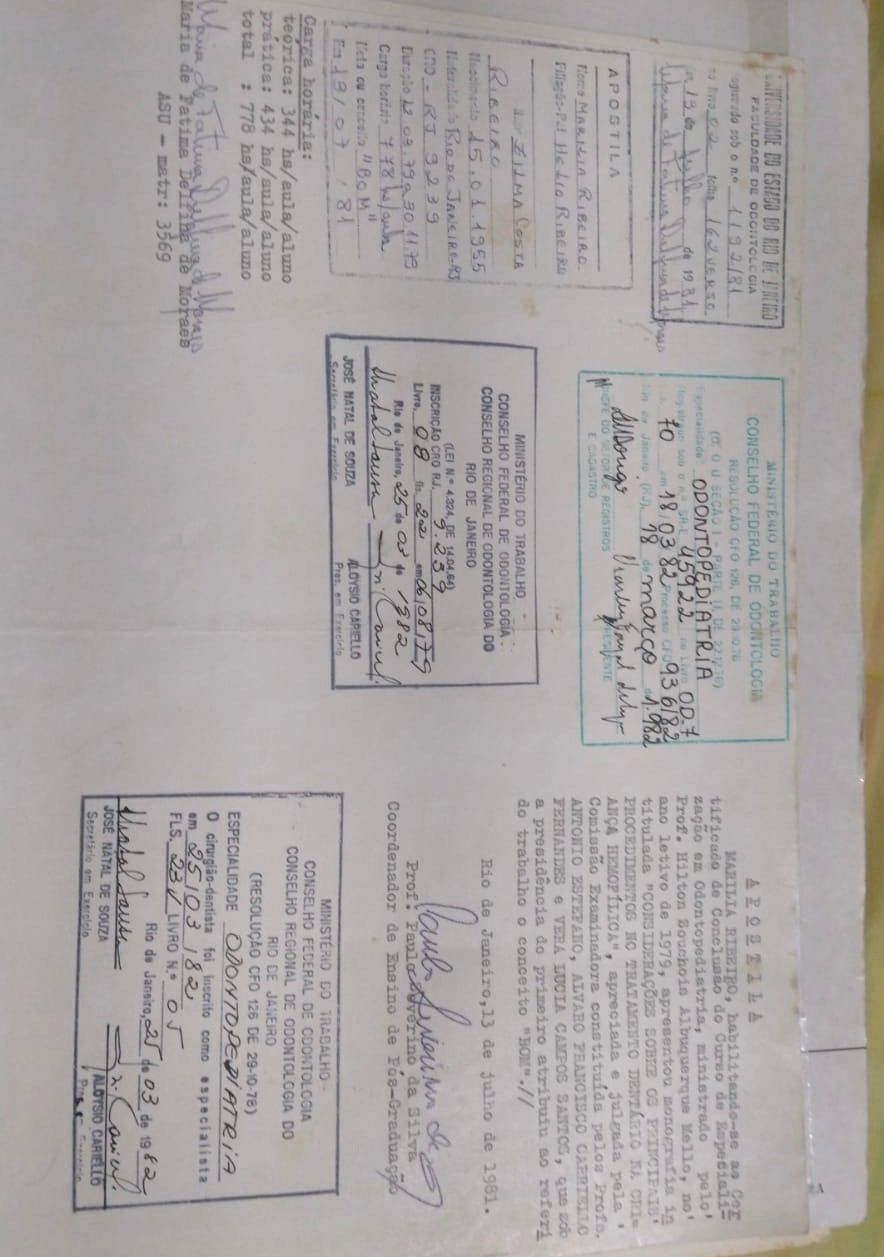 UNIVERSIDADE DO ESTADO DO RIO DE JANEIRO
FACULDADE DE ODONTOLOGIA
sob o n.º 1192/81
02 folha 162 verso
13 de Julho de 1981
Maria de Fatima Delfina de Moraes
APOSTILA
Nome MARILIA RIBEIRO
Filiação-Pai HELIO RIBEIRO
ZILMA COSTA
RIBEIRO
Nascimento 15.01.1955
Naturalidade RIO DE JANEIRO-RJ
CRO-RJ 9239
Duração 12.03.79 a 30.11.79
Carga horária 778 hs/aula
Nota ou conceito "BOM"
Em 13/07/81
Carga horária:
teórica: 344 hs/aula/aluno
prática: 434 hs/aula/aluno
total : 778 hs/aula/aluno
Maria de Fatima Delfina de Moraes
Maria de Fatima Delfina de Moraes
ASU - matr: 3569
MINISTÉRIO DO TRABALHO
CONSELHO FEDERAL DE ODONTOLOGIA
RESOLUÇÃO CFO 126, DE 29.10.78
(D O U SEÇÃO I - PARTE II DE 22.12.78)
Especialidade ODONTOPEDIATRIA
sob o n.º 45922 no Livro OD.7
70 em 18 03 82 Processo CFO 936/82
Rio de Janeiro (RJ), 18 de março de 1.982
CHEFE DO SETOR DE REGISTROS PRESIDENTE
E CADASTRO
MINISTÉRIO DO TRABALHO -
CONSELHO FEDERAL DE ODONTOLOGIA
CONSELHO REGIONAL DE ODONTOLOGIA DO
RIO DE JANEIRO
(LEI N.º 4.324, DE 14.04.64)
INSCRIÇÃO CRO RJ. 9.239
Livro. 08 fls. 22 em 06/08/79
Rio de Janeiro, 25 de 03 de 1982
JOSÉ NATAL DE SOUZA ALOYSIO CARIELLO
Secretário em Exercício Pres. em Exercício
APOSTILA
MARILIA RIBEIRO, habilitando-se ao Cer
tificado de Conclusão do Curso de Especiali-
zação em Odontopediatria, ministrado pelo'
Prof. Hilton Souchois Albuquerque Mello, no'
ano letivo de 1979, apresentou monografia in
titulada "CONSIDERAÇÕES SOBRE OS PRINCIPAIS'
PROCEDIMENTOS NO TRATAMENTO DENTÁRIO NA CRI-
ANÇA HEMOFÍLICA", apreciada e julgada pela '
Comissão Examinadora constituída pelos Profs.
ANTONIO ESTEFANO, ALVARO FRANCISCO CARRIELLO
FERNANDES e VERA LUCIA CAMPOS SANTOS, que sob
a presidência do primeiro atribuiu ao referi
do trabalho o conceito "BOM".//
Rio de Janeiro, 13 de julho de 1981.
Prof. Paulo Severino da Silva
Coordenador de Ensino de Pós-Graduação
MINISTÉRIO DO TRABALHO -
CONSELHO FEDERAL DE ODONTOLOGIA
CONSELHO REGIONAL DE ODONTOLOGIA DO
RIO DE JANEIRO
(RESOLUÇÃO CFO 126 DE 29-10-78)
ESPECIALIDADE ODONTOPEDIATRIA
O cirurgião-dentista foi inscrito como especialista
em 25/03/82
FLS. 23V LIVRO N.º 05
Rio de Janeiro, 25 de 03 de 1982
JOSÉ NATAL DE SOUZA ALOYSIO CARIELLO
Secretário em Exercício Pres. em Exercício